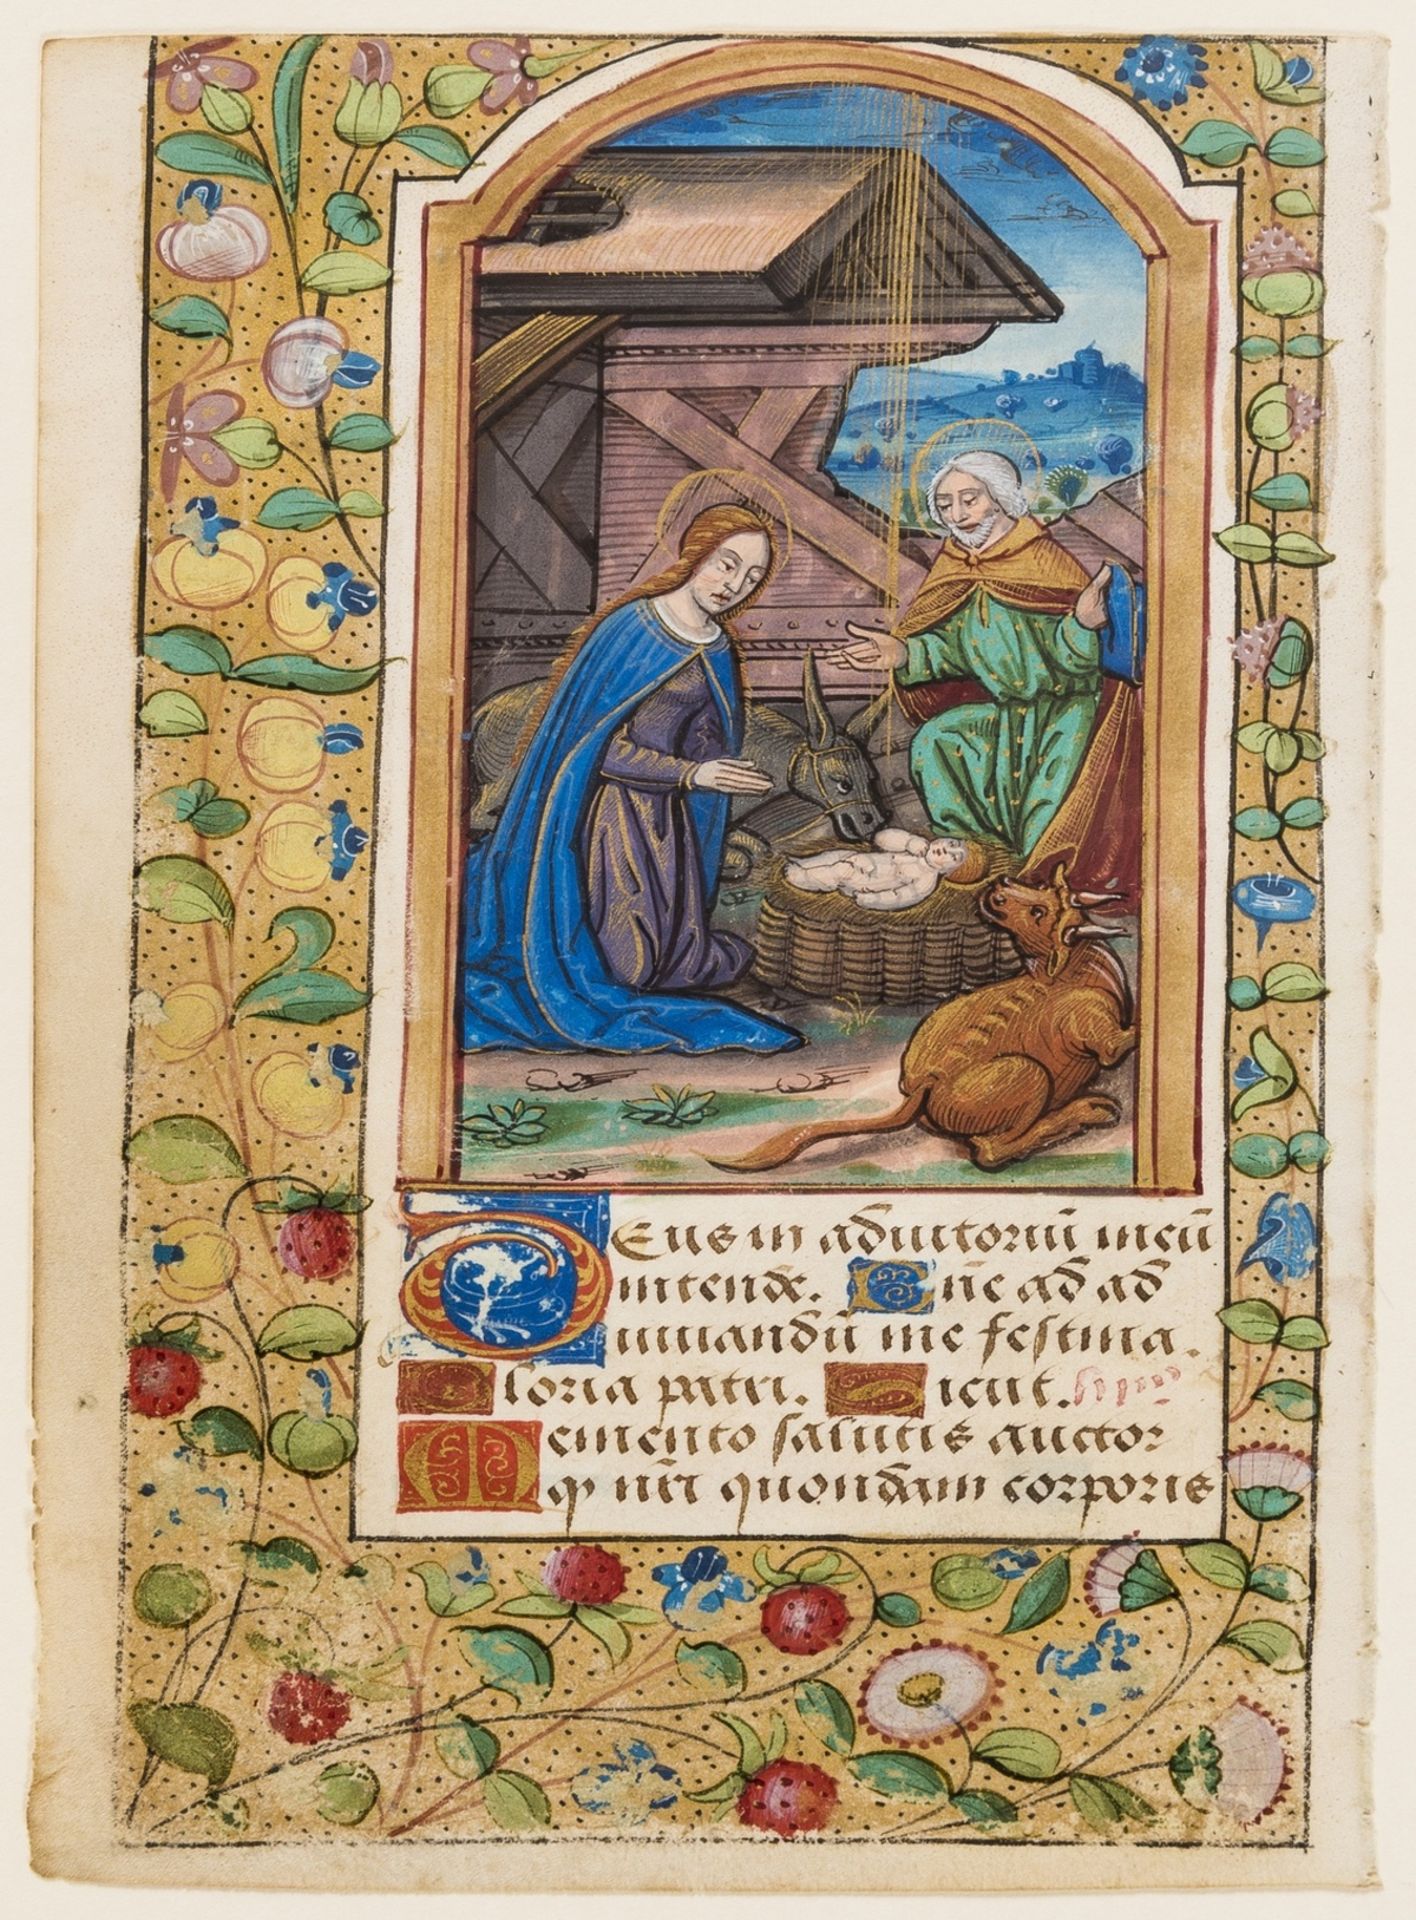 DEus in adiutoriū meū
intende. Dn̄e ad ad
iuuandū me festina.
Gloria patri. Sicut. hym̄
Memento salutis auctor
qp̄ nr̄i quondam corporis